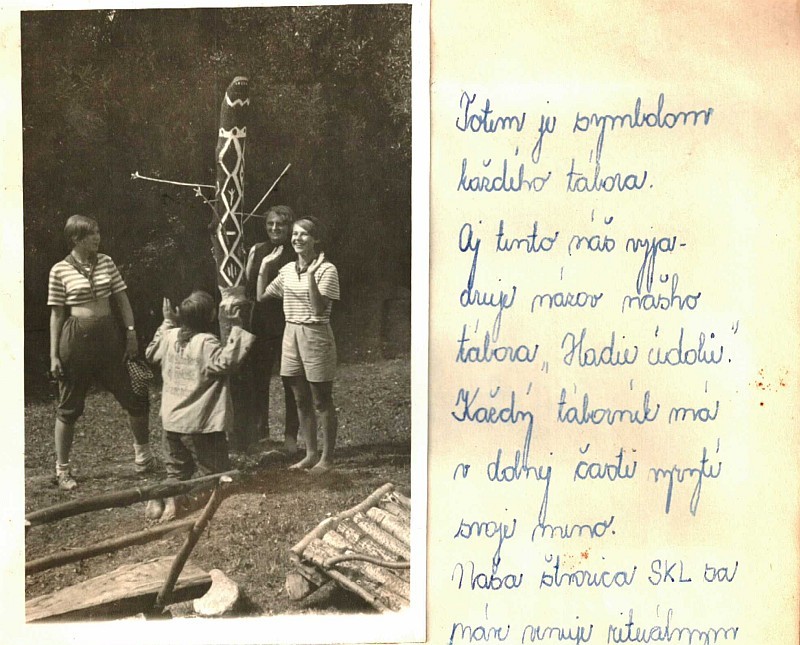 Totem je symbolom
každého tábora.
Aj tento náš vyja-
druje názov nášho
tábora „Hadie údolie."
Každý táborník má
v dolnej časti vyryté
svoje meno.
Naša štvorica SKL sa
práve venuje rituálnym